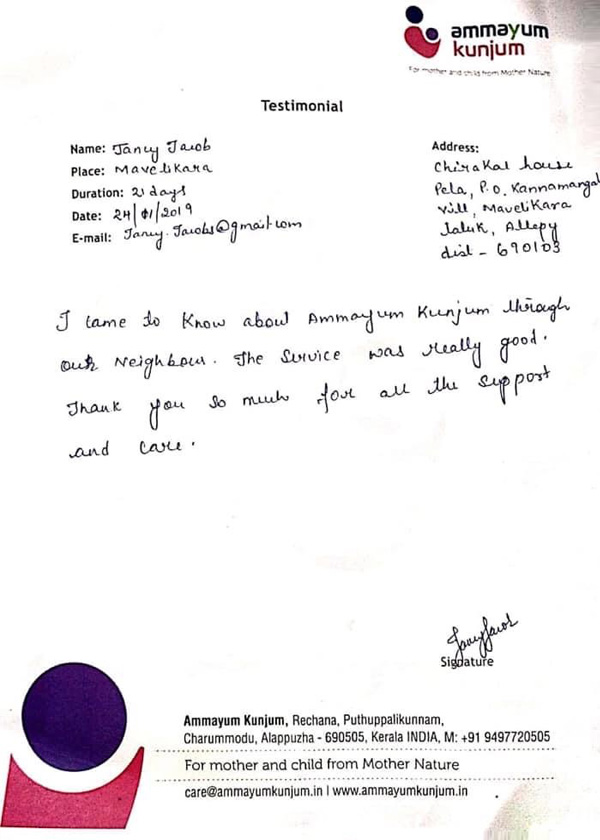 ammayum
kunjum
For mother and child from Mother Nature
Testimonial
Name: Jancy Jacob
Place: Mavelikara
Duration: 21 days
Date: 24/01/2019
E-mail: Jancy.Jacobs@gmail.com
Address:
Chirakal house
Pela, P.O. Kannamangal
Vill, Mavelikara
Taluk, Allepy
dist - 690103
I came to know about Ammayum Kunjum through
our Neighbour. The Service was really good.
Thank you so much for all the support
and care.
Jancy Jacob
Signature
Ammayum Kunjum, Rechana, Puthuppalikunnam,
Charummodu, Alappuzha - 690505, Kerala INDIA, M: +91 9497720505
For mother and child from Mother Nature
care@ammayumkunjum.in | www.ammayumkunjum.in